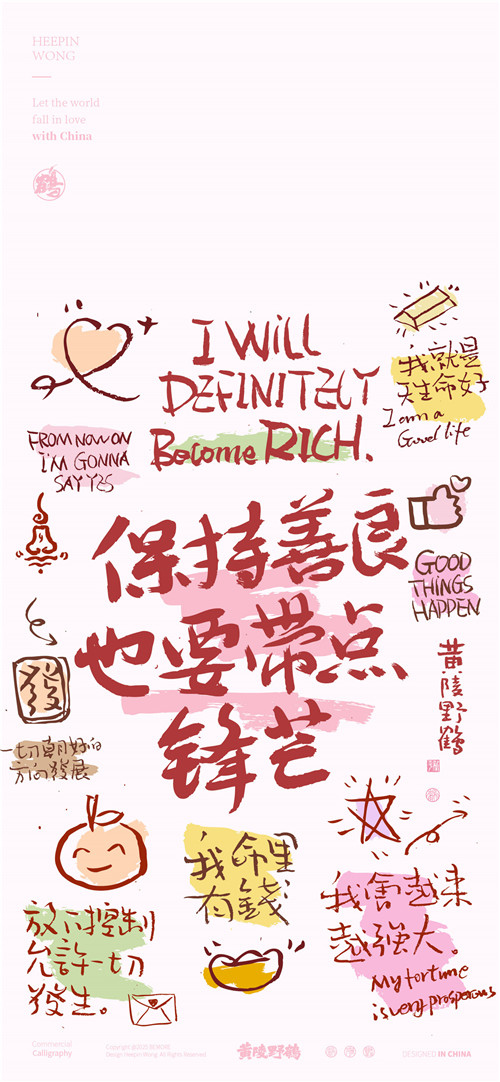 HEEPIN
WONG
Let the world
fall in love
with China
鹤
I WILL
DEFINITELY
Become RICH.
我就是
天生命好
I am a
Good life
FROM NOW ON
I'M GONNA
SAY YES
GOOD
THINGS
HAPPEN
保持善良
也要带点
锋芒
黄陵野鹤
發
一切朝好的
方向發展
我命里
有錢
放下控制
允許一切
發生。
我會越來
越強大。
My fortune
is very prosperous
Commercial
Calligraphy
黄陵野鹤
DESIGNED IN CHINA